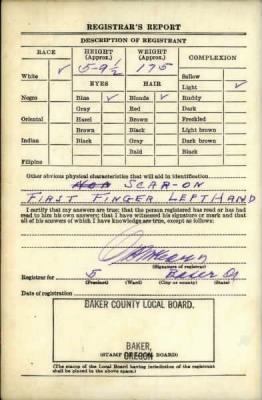 REGISTRAR'S REPORT
DESCRIPTION OF REGISTRANT
RACE HEIGHT (Approx.) WEIGHT (Approx.) COMPLEXION
White ✓ 5-9½ 175 Sallow
EYES HAIR Light ✓
Negro Blue ✓ Blonde ✓ Ruddy
Gray Red Dark
Oriental Hazel Brown Freckled
Brown Black Light brown
Indian Black Gray Dark brown
Bald Black
Filipino
Other obvious physical characteristics that will aid in identification
SCAR-ON
FIRST FINGER LEFT HAND
I certify that my answers are true; that the person registered has read or has had
read to him his own answers; that I have witnessed his signature or mark and that
all of his answers of which I have knowledge are true, except as follows:
(Signature of registrar)
Registrar for 5 Baker
(Precinct) (Ward) (City or county) (State)
Date of registration
BAKER COUNTY LOCAL BOARD.
BAKER,
OREGON
(STAMP BOARD)
(The stamp of the Local Board having jurisdiction of the registrant
shall be placed in the above space.)